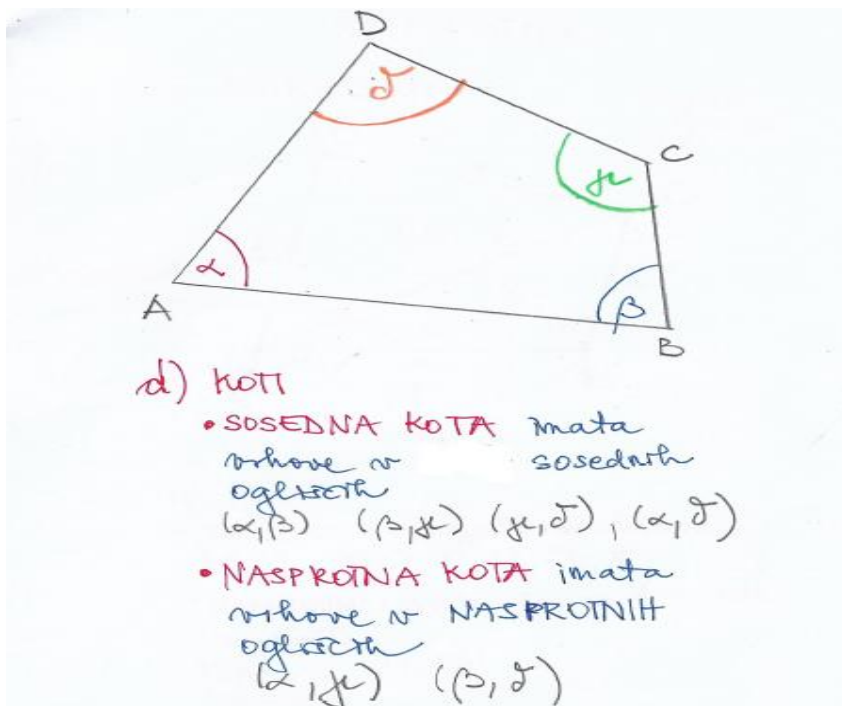 D
δ
C
γ
α
A
β
B
d) KOTI
• SOSEDNA KOTA imata
vrhove v sosednih
ogliščih
(α,β) (β,γ) (γ,δ), (α,δ)
• NASPROTNA KOTA imata
vrhove v NASPROTNIH
ogliščih
(α,γ) (β,δ)